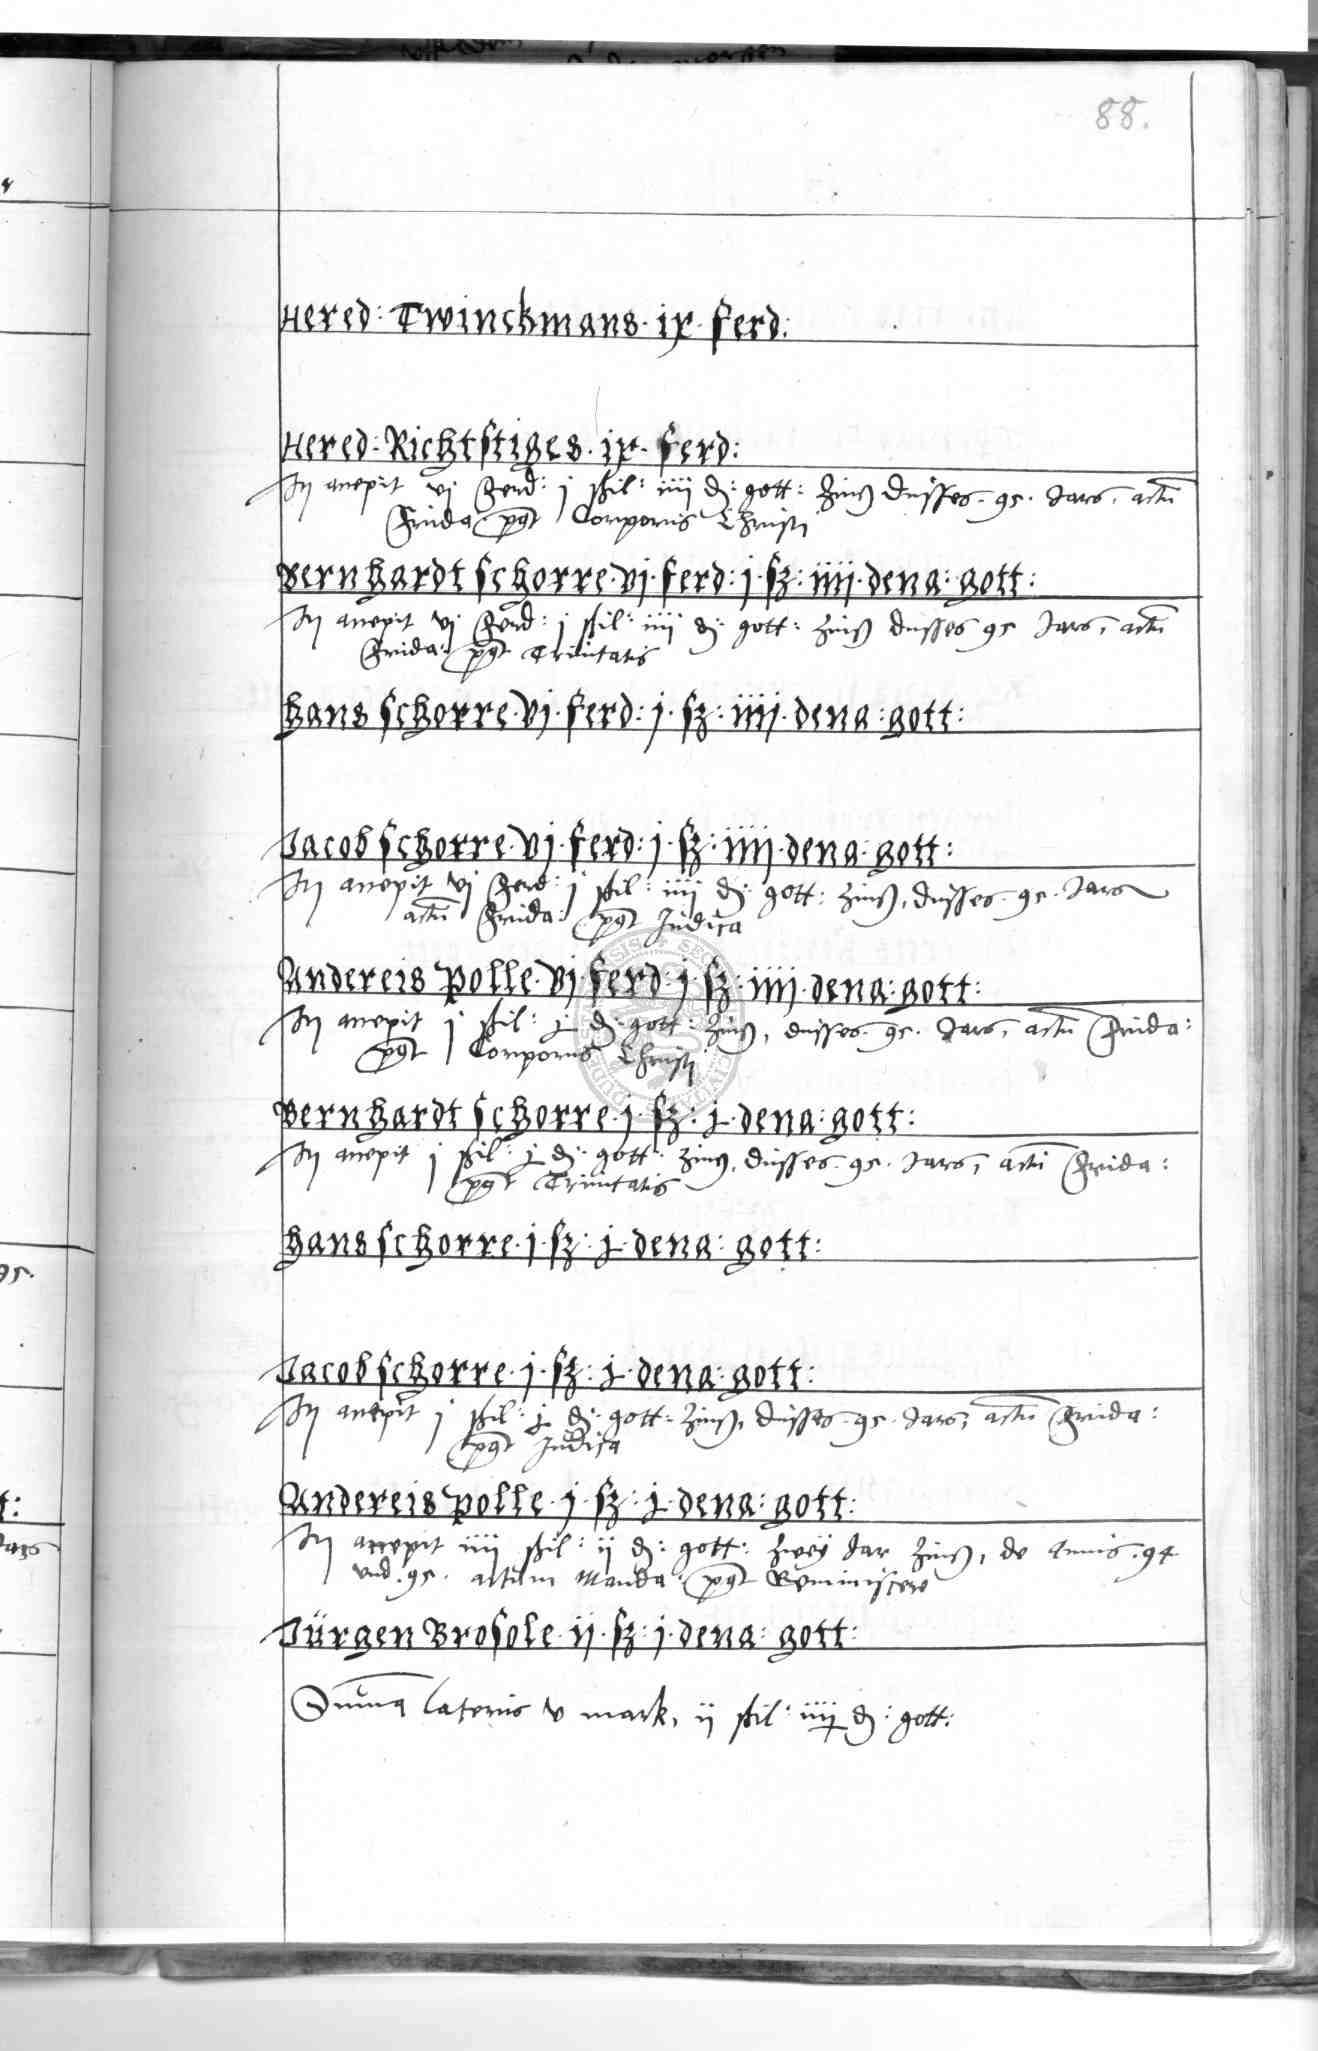 88.
Hered: Twinckmans. ix. ferd:
Hered: Richtstiges. ix. ferd:
Ij accepit vj Ferd: j shil: iiij d: gott: Zinß dusses. 95. Jars, actu
Frida post Corporis Christi
Bernhardt schorre. vj. ferd: j. sz: iiij. dena: gott:
Ij accepit vj Ferd: j shil: iiij d: gott: Zinß dusses 95 Jars, actu
Frida: post Trinitatis
hans schorre. vj. ferd: j. sz: iiij. dena: gott:
Jacob schorre. vj. ferd: j. sz: iiij. dena: gott:
Ij accepit vj Ferd: j shil: iiij d: gott: Zinß, dusses. 95. Jars
actu Frida: post Judica
Andereis polle. vj. ferd: j. sz: iiij. dena: gott:
Ij accepit j shil: j d: gott: Zinß, dusses. 95. Jars, actu Frida:
post Corporis Christi
Bernhardt schorre. j. sz: j. dena: gott:
Ij accepit j shil: j d: gott: Zinß, dusses. 95. Jars, actu Frida:
post Trinitatis
hans schorre. j. sz: j. dena: gott:
Jacob schorre. j. sz: j. dena: gott:
Ij accepit j shil: j d: gott: Zinß, dusses. 95. Jars, actu Frida:
post Judica
Andereis polle. j. sz: j. dena: gott:
Ij accepit iiij shil: ij d: gott: zwey Jar Zinß, de Annis. 94
und. 95. actum Manda: post Reminiscere
Jürgen Brosole. ij. sz: j. dena: gott:
Suma lateris v mark, ij shil: iiij d: gott: